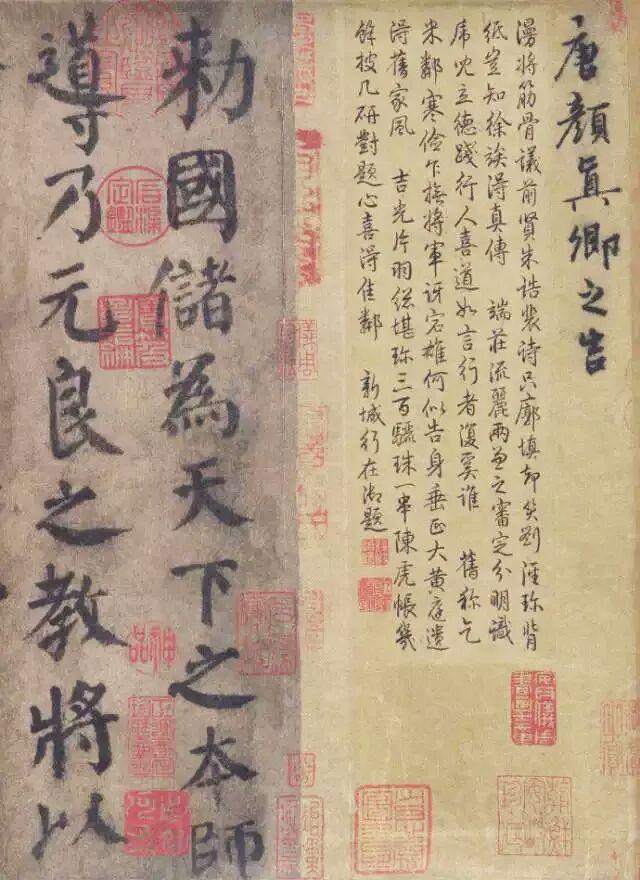 唐顏真卿之告
漫將筋骨議前賢朱誥裴诗只廓填却笑劉涇珎背
紙豈知徐族得真傳 端莊流麗兩兼之審定分明識
席兕立德踐行人喜道如言行者復奚誰 舊称乞
米鄰寒儉乍撫將軍訝宕雄何似告身垂正大黄庭遺
得舊家風 吉光片羽總堪珎三百驪珠一串陳虎帳幾
餘披几研對題心喜得佳鄰 新城行在御題
勅國儲為天下之本師
導乃元良之教將以
神品